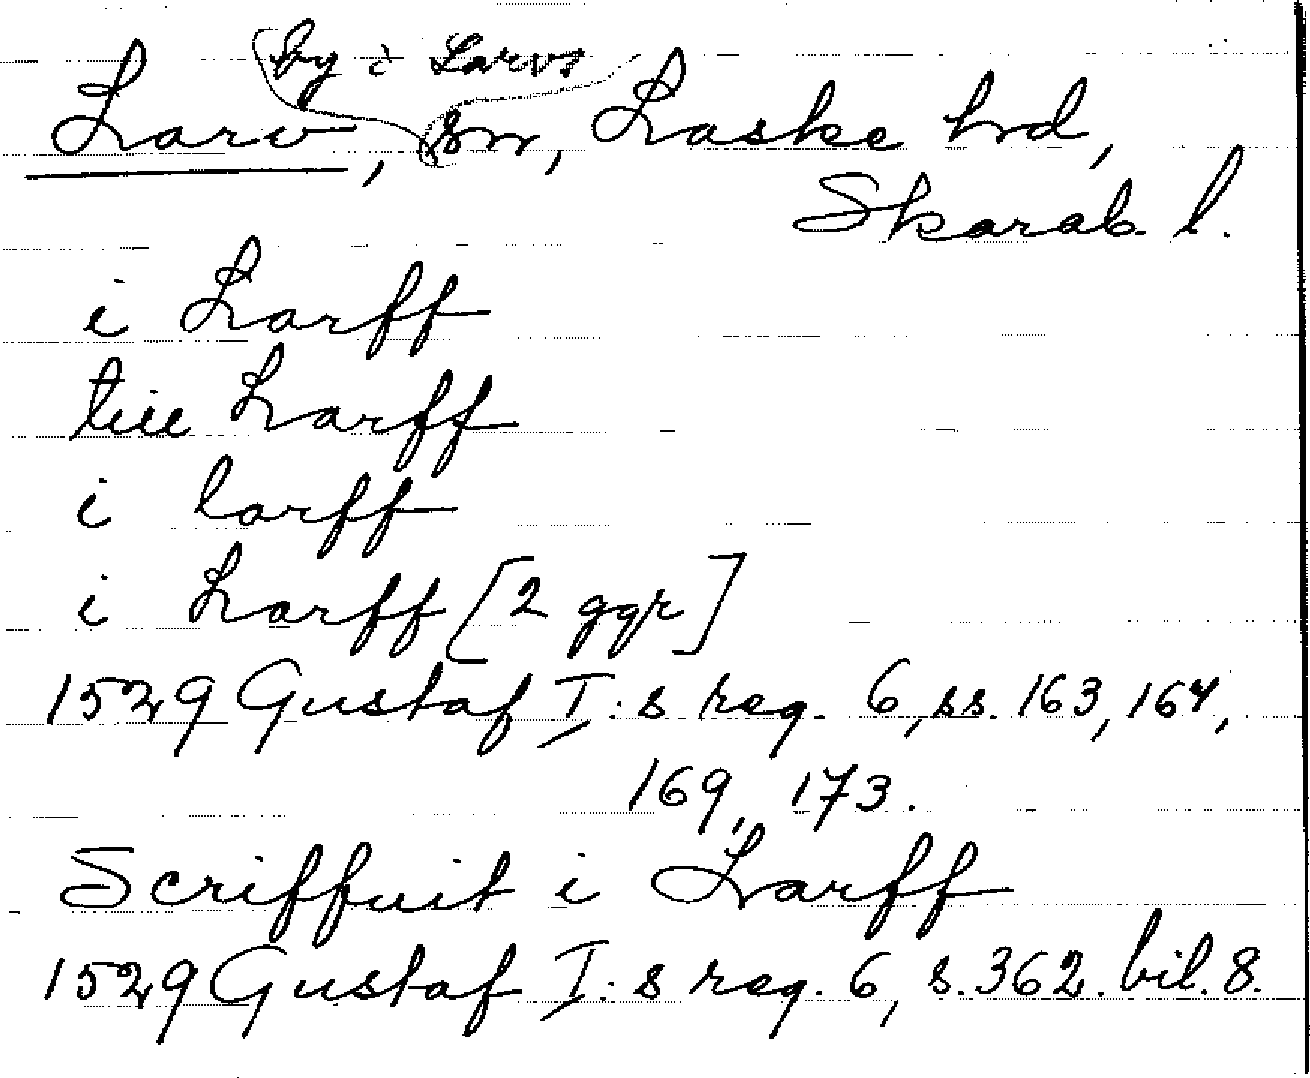 by i Larvs
Larv, sn, Laske hd,
Skarab. l.
i Larff
tiil Larff
i larff
i Larff [2 ggr]
1529 Gustaf I:s reg. 6, ss. 163, 164,
169, 173.
Scriffuit i Larff
1529 Gustaf I:s reg. 6, s. 362. bil. 8.